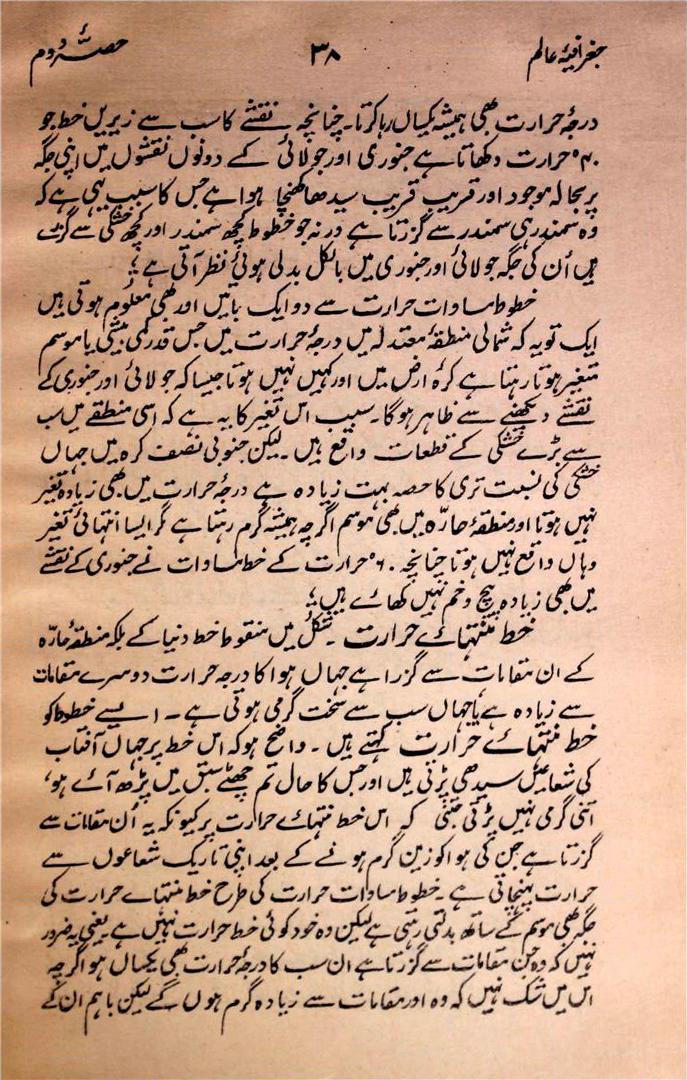 جغرافیۂ عالم ۳۸ حصۂ دوم
درجۂ حرارت بھی ہمیشہ یکساں رہا کرتا۔ چنانچہ نقشے کا سب سے زیریں خط جو
۴۰° حرارت دکھاتا ہے جنوری اور جولائی کے دونوں نقشوں میں اپنی جگہ
پر بحالہ موجود اور قریب قریب سیدھا کھنچا ہوا ہے جس کا سبب یہی ہے کہ
وہ سمندر ہی سمندر سے گزرتا ہے ورنہ جو خطوط کچھ سمندر اور کچھ خشکی سے گزرتے
ہیں اُن کی جگہ جولائی اور جنوری میں بالکل بدلی ہوئی نظر آتی ہے ؛
خطوط مساوات حرارت سے دو ایک باتیں اور بھی معلوم ہوتی ہیں
ایک تو یہ کہ شمالی منطقۂ معتدلہ میں درجۂ حرارت میں جس قدر کمی بیشی یا موسم
متغیر ہوتا رہتا ہے کرۂ ارض میں اور کہیں نہیں ہوتا جیسا کہ جولائی اور جنوری کے
نقشے دیکھنے سے ظاہر ہوگا۔ سبب اس تغیر کا یہ ہے کہ اسی منطقے میں سب
سے بڑے خشکی کے قطعات واقع ہیں۔ لیکن جنوبی نصف کرہ میں جہاں
خشکی کی نسبت تری کا حصہ بہت زیادہ ہے درجۂ حرارت میں بھی زیادہ تغیر
نہیں ہوتا اور منطقۂ حارّہ میں بھی موسم اگرچہ ہمیشہ گرم رہتا ہے مگر ایسا انتہائی تغیر
وہاں واقع نہیں ہوتا چنانچہ ۶۰° حرارت کے خط مساوات نے جنوری کے نقشے
میں بھی زیادہ پیچ و خم نہیں کھائے ہیں ؛
خط منتہائے حرارت ۔ شکل میں منقوط خط دنیا کے بلکہ منطقۂ حارّہ
کے ان مقامات سے گزرا ہے جہاں ہوا کا درجہ حرارت دوسرے مقامات
سے زیادہ ہے یا جہاں سب سے سخت گرمی ہوتی ہے ۔ ایسے خطوط کو
خط منتہائے حرارت کہتے ہیں ۔ واضح ہو کہ اس خط پر جہاں آفتاب
کی شعاعیں سیدھی پڑتی ہیں اور جس کا حال تم چھٹے سبق میں پڑھ آئے ہو،
اتنی گرمی نہیں پڑتی جتنی کہ اس خط منتہائے حرارت پر کیونکہ یہ اُن مقامات سے
گزرتا ہے جن کی ہوا کو زمین گرم ہونے کے بعد اپنی تاریک شعاعوں سے
حرارت پہنچاتی ہے ۔ خطوط مساوات حرارت کی طرح خط منتہائے حرارت کی
جگہ بھی موسم کے ساتھ بدلتی رہتی ہے لیکن وہ خود کوئی خط حرارت نہیں ہے۔ یعنی یہ ضرور
نہیں کہ وہ جن مقامات سے گزرتا ہے ان سب کا درجۂ حرارت بھی یکساں ہو اگرچہ
اس میں شک نہیں کہ وہ اور مقامات سے زیادہ گرم ہوں گے لیکن باہم ان کے